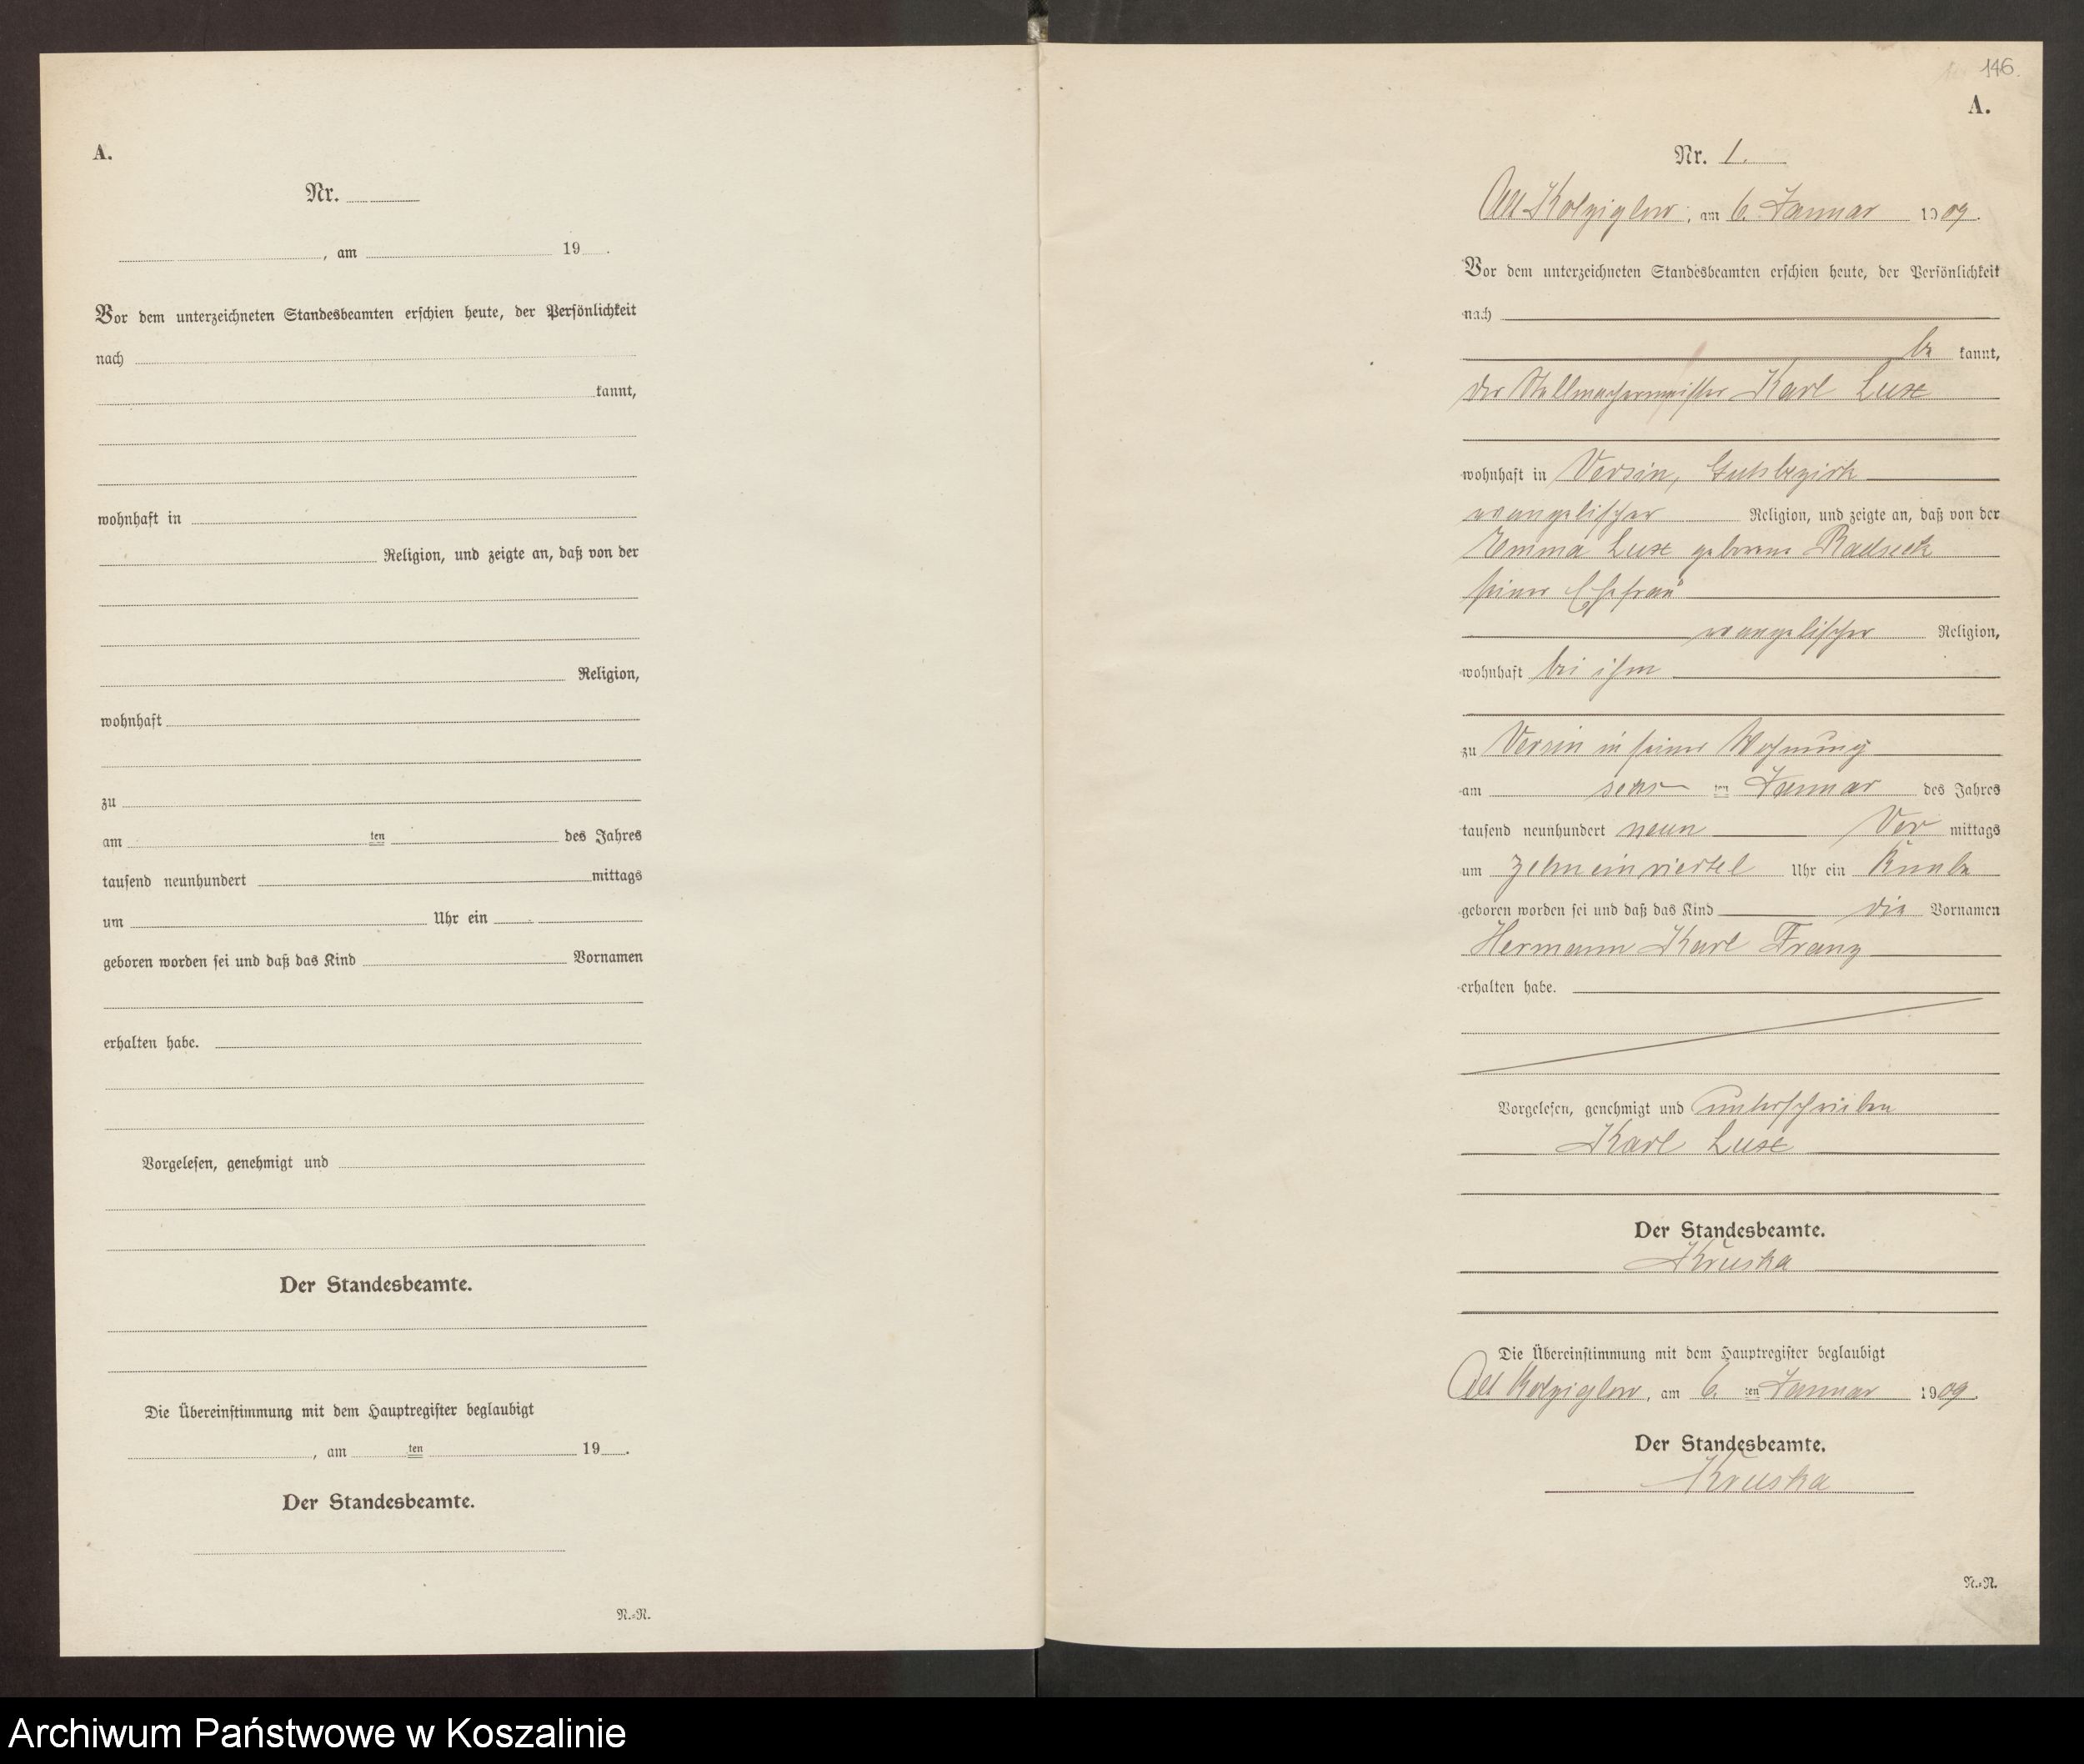 A.
Nr.
, am 19 .
Vor dem unterzeichneten Standesbeamten erschien heute, der Persönlichkeit
nach
kannt,
wohnhaft in
Religion, und zeigte an, daß von der
Religion,
wohnhaft
zu
am ten des Jahres
tausend neunhundert mittags
um Uhr ein
geboren worden sei und daß das Kind Vornamen
erhalten habe.
Vorgelesen, genehmigt und
Der Standesbeamte.
Die Übereinstimmung mit dem Hauptregister beglaubigt
, am ten 19 .
Der Standesbeamte.
N.=N.
146.
A.
Nr. 1.
Alt Kolziglow, am 6. Januar 1909.
Vor dem unterzeichneten Standesbeamten erschien heute, der Persönlichkeit
nach
be kannt,
der Stellmachermeister Karl Lux
wohnhaft in Versin, Gutsbezirk
evangelischer Religion, und zeigte an, daß von der
Emma Lux geborene
seiner Ehefrau
evangelischer Religion,
wohnhaft bei ihm
zu Versin in seiner Wohnung
am ten Januar des Jahres
tausend neunhundert neun Vor mittags
um zehn ein viertel Uhr ein Knabe
geboren worden sei und daß das Kind die Vornamen
Hermann Karl Franz
erhalten habe.
Vorgelesen, genehmigt und unterschrieben
Karl Lux
Der Standesbeamte.
Kruska
Die Übereinstimmung mit dem Hauptregister beglaubigt
Alt Kolziglow, am 6. ten Januar 1909.
Der Standesbeamte.
Kruska
N.=N.
Archiwum Państwowe w Koszalinie